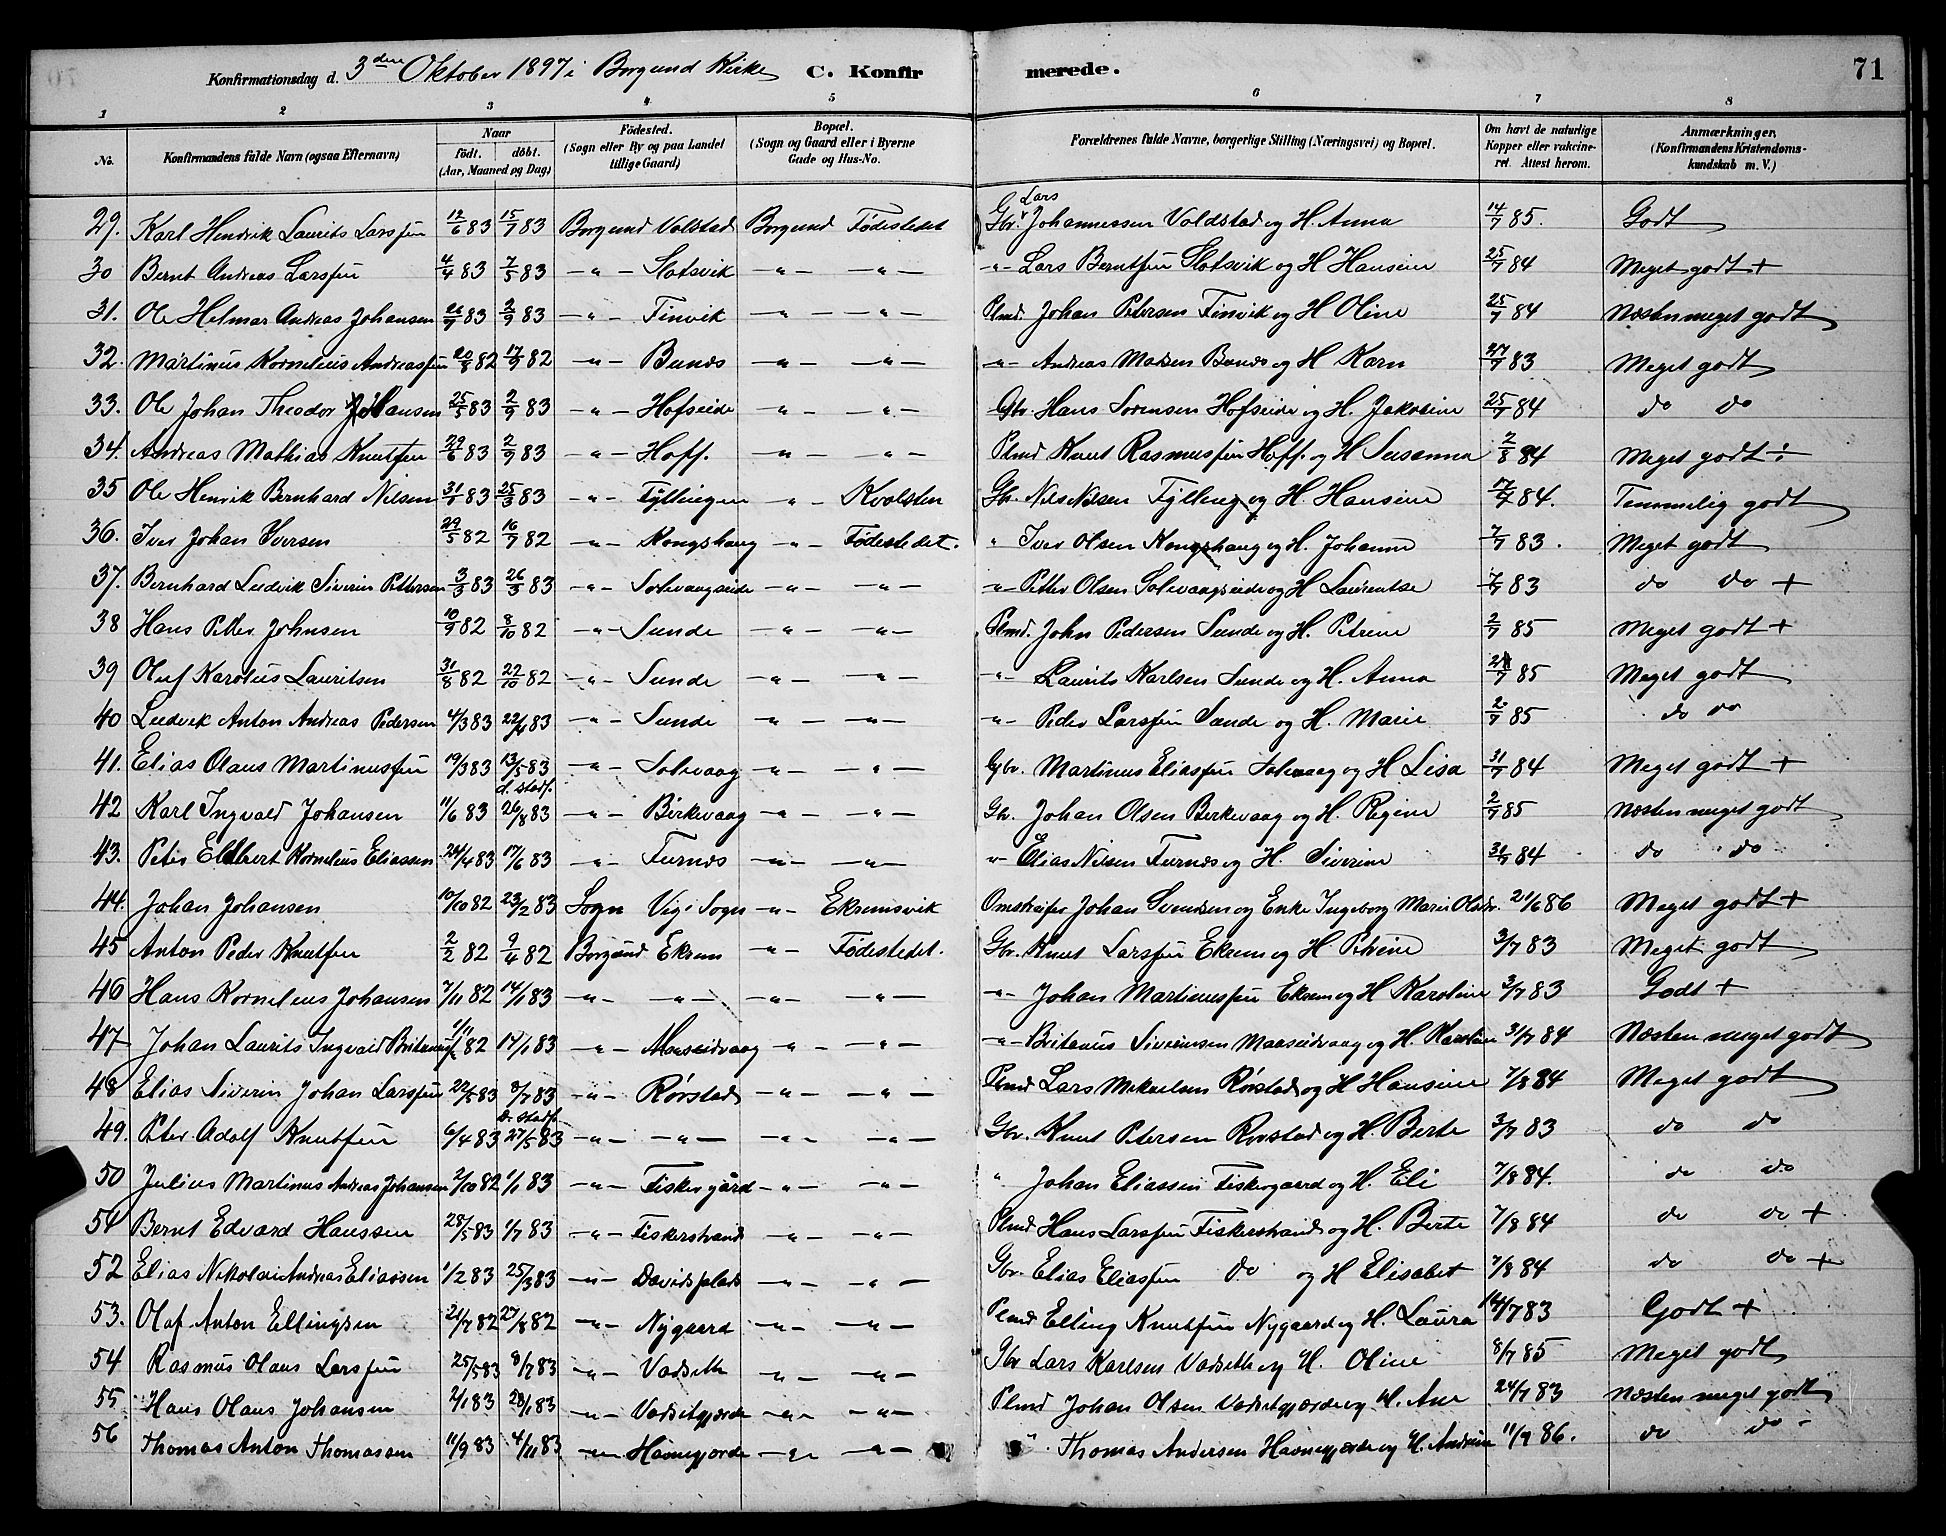 Konfirmationsdag d. 3den Oktober 1897 i Borgund Kirke C. Konfirmerede. 71
1 2 3 4 5 6 7 8
No. Konfirmandens fulde Navn (ogsaa Efternavn) Naar födt. döbt. (Aar, Maaned og Dag) Födested. (Sogn eller By og paa Landet tillige Gaard) Bopæl. (Sogn og Gaard eller i Byerne Gade og Hus-No. Forældrenes fulde Navne, borgerlige Stilling (Næringsvei) og Bopæl. Om havt de naturlige Kopper eller vakcineret. Attest herom. Anmærkninger, (Konfirmandens Kristendomskundskab m. V.)
29. Karl Hendrik Laurits Larssen 12/6 83 15/7 83 Borgund Valstad Borgund Fødestedet Gbr. Lars Johannessen Voldstad og H. Anna 14/7 85. Godt
30 Bernt Andreas Larssen 4/4 83 7/5 83 -"- Slotsvik -"- -"- -"- Lars Berntsen Slotsvik og H Hansine 25/7 84 Meget godt +
31. Ole Helmar Andreas Johansen 26/7 83 2/9 83 -"- Finvik -"- -"- Plmd. Johan Petersen Finvik og H Oline 25/7 84 Næsten meget godt
32. Martinus Kornelius Andreassen 20/8 82 17/9 82 -"- Bunes -"- -"- -"- Andreas Madsen Bunes og H Karn 27/7 83 Meget godt
33. Ole Johan Theodor Hansen 25/5 83 2/9 83 -"- Hofseide -"- -"- Gbr. Hans Sørensen Hofseide og H. Jakobine 25/7 84 do do
34. Andreas Mathias Knutsen 29/6 83 2/9 83 -"- Hoff. -"- -"- Plmd Knut Rasmussen Hoff. og H Susanna 2/8 84 Meget godt ÷
35 Ole Henrik Bernhard Nilsen 31/1 83 25/3 83 -"- Tyllingen -"- Kvalsten Gbr. Nils Nilsen Tylling og H. Hansine 17/7 84. Temmelig godt
36. Iver Johan Iversen 29/5 82 16/7 82 -"- Kongshaug -"- Fødestedet. " Iver Olsen Kongshaug og H. Johanne 7/7 83. Meget godt
37. Bernhard Ludvik Siverin Pettersen 3/3 83 26/3 83 -"- Solevaagseide -"- -"- -"- Petter Olsen Solevaagseide og H Laurentse 7/7 83 do do +
38 Hans Petter Johnsen 10/9 82 8/10 82 -"- Sunde -"- -"- Plmd. John Pedersen Sunde og H. Petrine 2/7 85 Meget godt +
39 Oluf Karolus Lauritsen 31/8 82 22/10 82 -"- Sunde -"- -"- -"- Laurits Karlsen Sunde og H. Anna /7 85 Meget godt
40 Ludvik Anton Andreas Pedersen 4/3 83 22/4 83 -"- Sunde -"- -"- -"- Peder Larssen Sunde og H. Marie 2/7 85 do do
41. Elias Olaus Martinussen 19/3 83 13/5 83 d. stadf. -"- Solevaag -"- -"- Gbr. Martinus Eliassen Solevaag og H Lisa 31/7 84 Meget godt +
42 Karl Ingvald Johansen 11/6 83 26/8 83 -"- Birkevaag -"- -"- Gbr. Johan Olsen Birkevaag og H. Regine 2/7 85 Næsten meget godt
43. Peter Elbert Kornelius Eliassen 24/4 83 17/6 83 -"- Furnes -"- -"- -"- Elias Nilsen Furnes og H. Siverine 31/7 84 do do
44. Johan Johansen 10/10 82 23/2 83 Sogn Vig i Sogn -"- Eksemsvik Omstreifer Johan Svendsen og Enke Ingeborg Marie Olsdr. 21/6 86 Meget godt +
45 Anton Peder Knutsen 2/2 82 9/4 82 Borgund Eksem -"- Fødestedet. Gbr. Knut Larssen Eksem og H Petrine 3/7 83 Meget godt
46 Hans Kornelius Johansen 7/11 82 14/1 83 -"- -"- -"- -"- -"- Johan Martinussen Eksem og H Karoline 3/7 83 Godt +
47 Johan Laurits Ingvald Britanus 1/11 82 14/1 83 -"- Maseidvaag -"- -"- -"- Britanus Siverinsen Maaseidvaag og H. Karoline 31/7 84 Næsten meget godt
48 Elias Siverin Johan Larssen 22/5 83 8/7 83 -"- Rørstad -"- -"- Plmd Lars Mikaelsen Rørstad og H Hansine 7/8 84 Meget godt
49. Peter Adolf Knutsen 6/4 83 d. stadf. 27/5 83 -"- -"- -"- -"- Gbr. Knut Petersen Rørstad og H. Berte 3/7 83 do do
50 Julius Martinus Andreas Johansen 2/10 82 1/1 83 -"- Fiskergård -"- -"- " Johan Eliassen Fiskergaard og H. Eli 7/8 84. do do
51 Bernt Edvard Hanssen 28/5 83 1/7 83 -"- Fiskerstrand -"- -"- Plmd Hans Larssen Fiskerstrand og H. Berte 7/8 84 do do +
52 Elias Nikolai Andreas Eliassen 1/2 83 25/3 83 -"- Davidsplads -"- -"- Gbr. Elias Eliassen do og H Elisabet 7/8 84 do do +
53. Olaf Anton Ellingsen 21/7 82 27/8 82 -"- Nygaard -"- -"- Plmd Elling Knutsen Nygaard og H. Laura 14/7 83 Godt +
54 Rasmus Olaus Larssen 25/5 83 8/7 83 -"- Vadseth -"- -"- Gbr Lars Karlsen Vadseth og H. Oline 8/7 85 Meget godt
55 Hans Olaus Johansen 2/1 83 28/1 83 -"- Vadsetgjerde -"- -"- Plmd Johan Olsen Vadsetgjerde og H. Ane 24/7 83 Næsten meget godt
56 Thomas Anton Thomassen 11/9 83 4/11 83 -"- Havnegjerde -"- -"- " Thomas Andersen Havnegjerde og H. Andrine 11/9 86. do do -